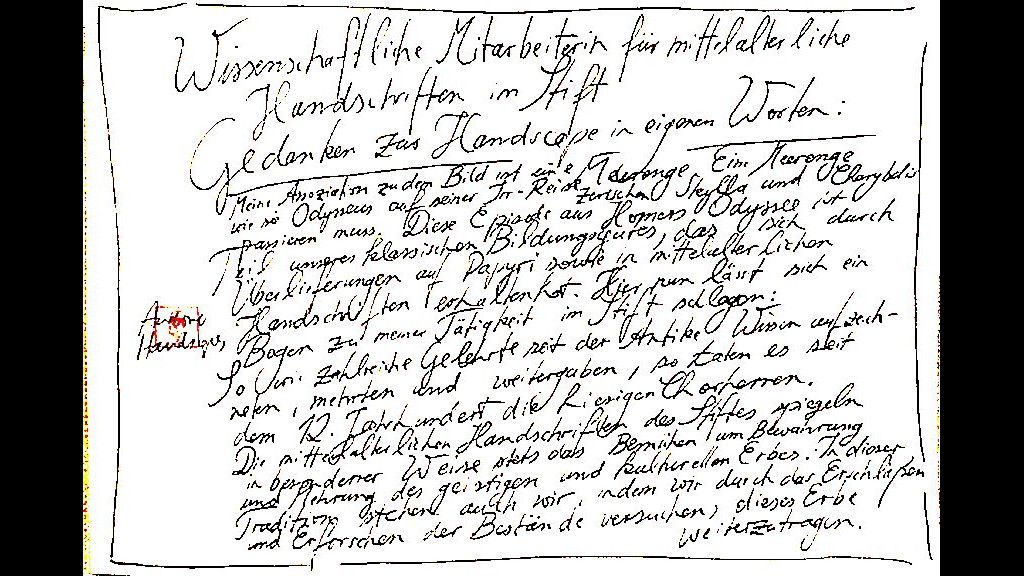 Wissenschaftliche Mitarbeiterin für mittelalterliche
Handschriften im Stift
Gedanken zur Handscape in eigenen Worten:
Meine Assoziation zu dem Bild ist eine Meerenge. Eine Meerenge
wie sie Odysseus auf seiner Irr-Reise zwischen Skylla und Charybdis
passieren muss. Diese Episode aus Homers Odyssee ist
Teil unseres klassischen Bildungsgutes, das sich durch
Überlieferungen auf Papyri sowie in mittelalterlichen
Handschriften erhalten hat. Hier nun lässt sich ein
Bogen zu meiner Tätigkeit im Stift schlagen:
So wie zahlreiche Gelehrte seit der Antike Wissen aufzeich-
neten, mehrten und weitergaben, so taten es seit
dem 12. Jahrhundert die hiesigen Chorherren.
Die mittelalterlichen Handschriften des Stiftes spiegeln
in besonderer Weise stets das Bemühen um Bewahrung
und Mehrung des geistigen und kulturellen Erbes. In dieser
Tradition stehen auch wir, indem wir durch das Erschließen
und Erforschen der Bestände versuchen, dieses Erbe
weiterzutragen.